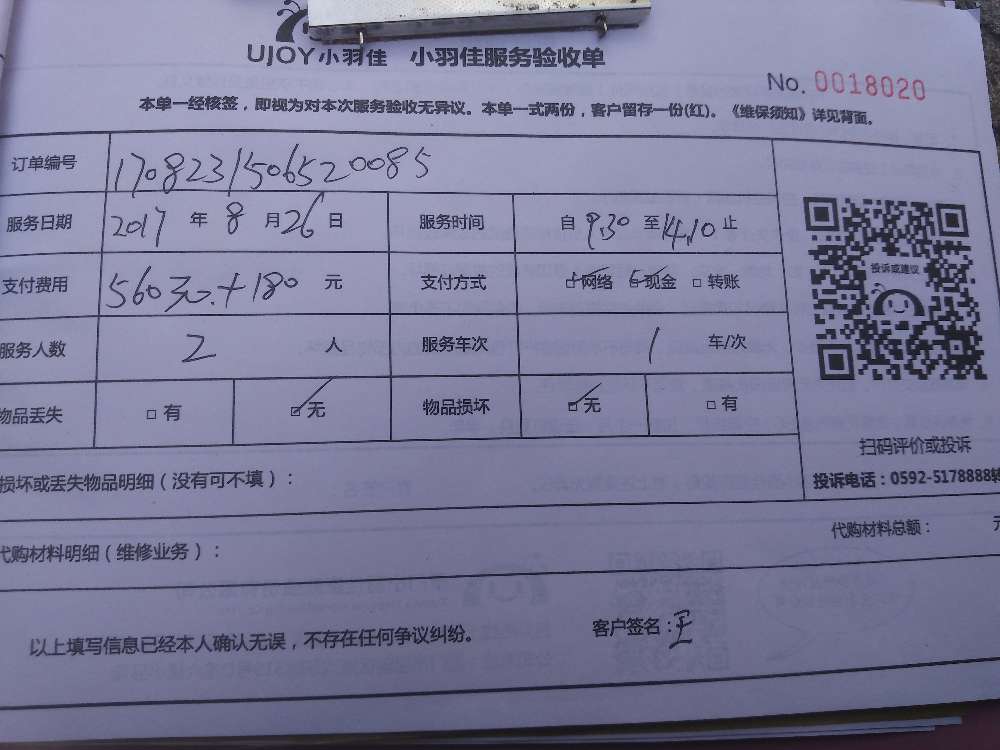 UJOY小羽佳 小羽佳服务验收单
No. 0018020
本单一经核签，即视为对本次服务验收无异议。本单一式两份，客户留存一份(红)。《维保须知》详见背面。
订单编号 170823150652​0085
服务日期 2017 年 8 月 26 日 服务时间 自 9.30 至 14.10 止
支付费用 560元.+180 元 支付方式 ☑网络 ☑现金 □转账
投诉或建议
服务人数 2 人 服务车次 1 车/次
物品丢失 □有 ☑无 物品损坏 ☑无 □有
扫码评价或投诉
损坏或丢失物品明细（没有可不填）：
投诉电话：0592-5178888转
代购材料明细（维修业务）：
代购材料总额： 元
以上填写信息已经本人确认无误，不存在任何争议纠纷。
客户签名：王